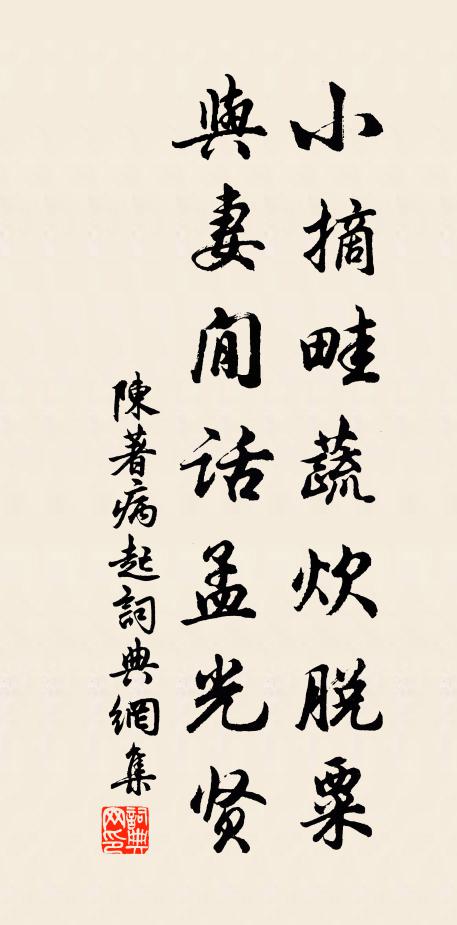 小摘畦蔬炊脱粟
與妻閒话孟光贤
陳著病起詞典網集
詞典网印